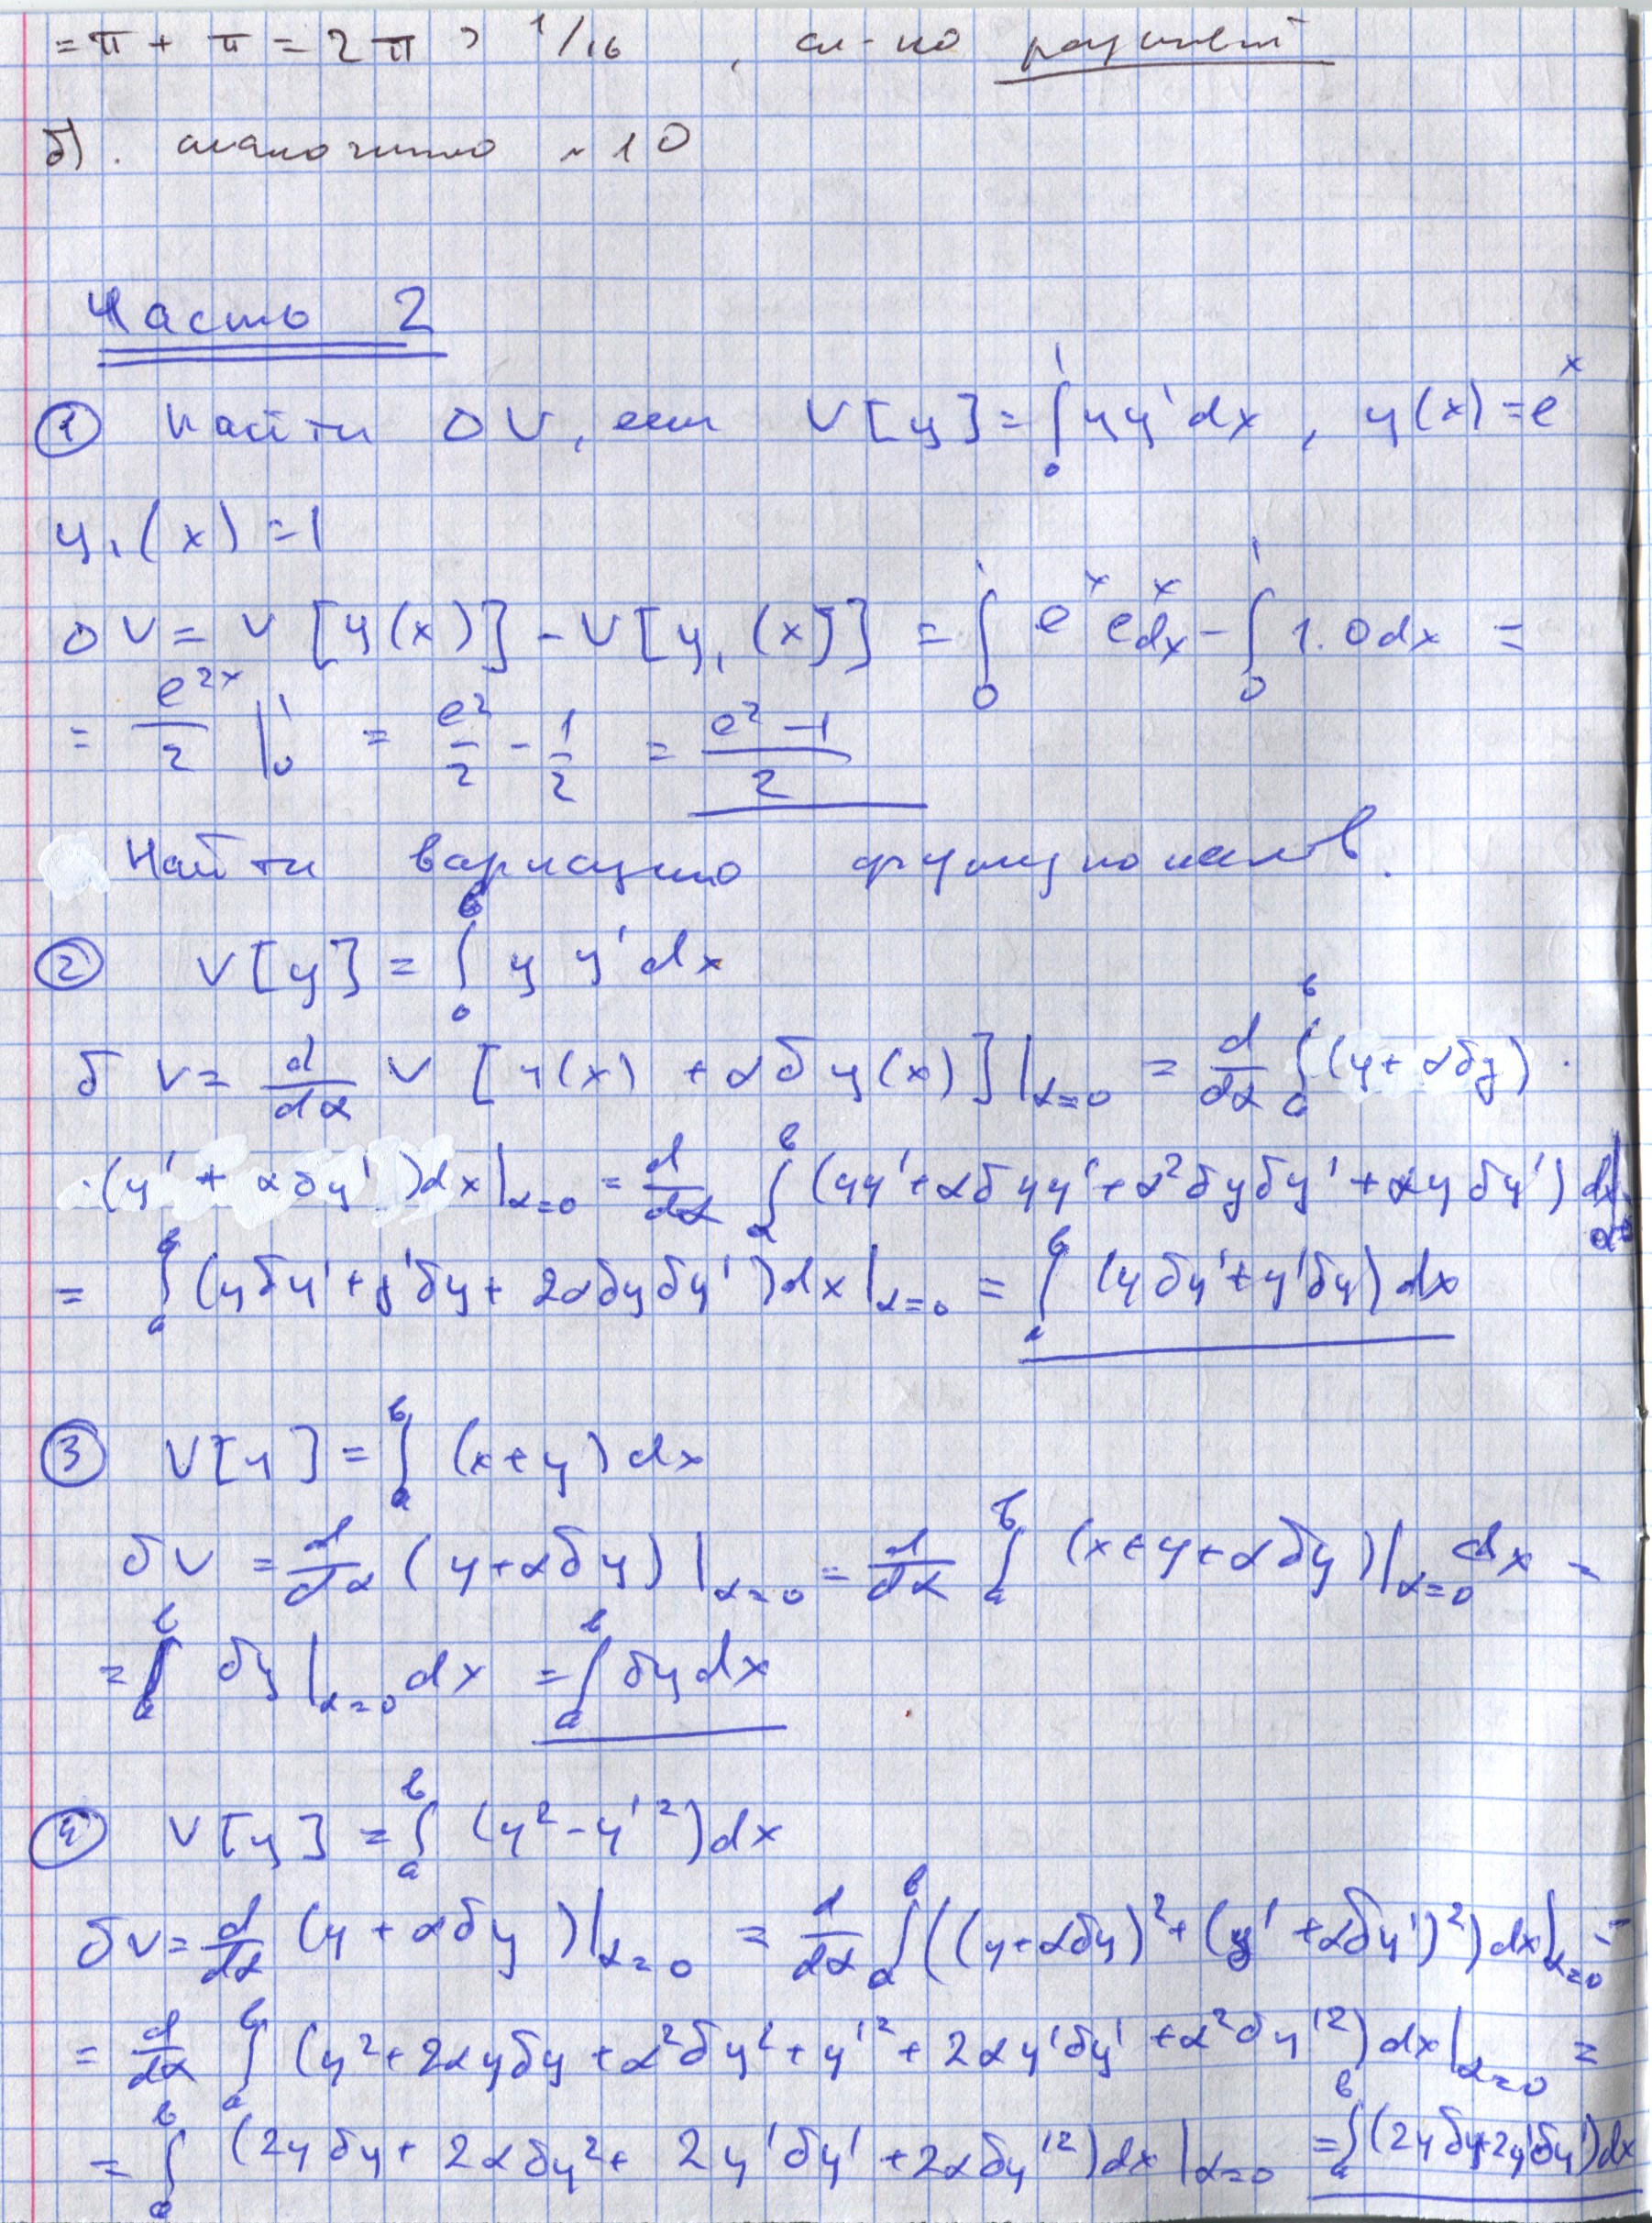 = π + π = 2π > 1/16 , сл-но
б). аналогично ~ 10
Часть 2
① Найти ΔV, если V[y] = ∫₀¹ yy' dx , y(x) = eˣ
y₁(x) = 1
ΔV = V[y(x)] - V[y₁(x)] = ∫₀¹ eˣ eˣ dx - ∫₀¹ 1·0 dx =
= e²ˣ/2 |₀¹ = e²/2 - 1/2 = (e² - 1)/2
Найти вариацию функционалов.
② V[y] = ∫ₐᵇ y y' dx
δV = d/dα V[y(x) + αδy(x)]|α=0 = d/dα ∫ₐᵇ (y + αδy) ·
·(y' + αδy')dx|α=0 = d/dα ∫ₐᵇ (yy' + αδyy' + α²δyδy' + αyδy') dx|α=0
= ∫ₐᵇ (yδy' + y'δy + 2αδyδy')dx|α=0 = ∫ₐᵇ (yδy' + y'δy) dx
③ V[y] = ∫ₐᵇ (x+y) dx
δV = d/dα (y + αδy)|α=0 = d/dα ∫ₐᵇ (x + y + αδy)|α=0 dx =
= ∫ₐᵇ δy|α=0 dx = ∫ₐᵇ δy dx
④ V[y] = ∫ₐᵇ (y² - y'²)dx
δV = d/dα (y + αδy)|α=0 = d/dα ∫ₐᵇ ((y + αδy)² + (y' + αδy')²) dx|α=0 =
= d/dα ∫ₐᵇ (y² + 2αyδy + α²δy² + y'² + 2αy'δy' + α²δy'²) dx|α=0 =
= ∫ₐᵇ (2yδy + 2αδy² + 2y'δy' + 2αδy'²)dx|α=0 = ∫ₐᵇ (2yδy + 2y'δy')dx